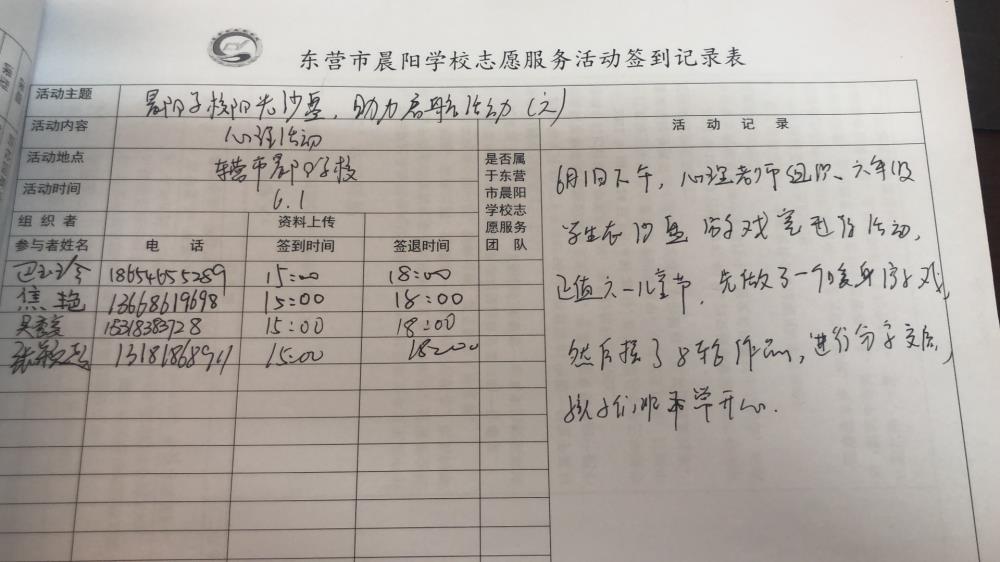 东营市晨阳学校志愿服务活动签到记录表
活动主题 晨阳学校阳光沙盘，助力启航活动（六）
活动内容 心理活动
活动地点 东营市晨阳学校
活动时间 6.1
是否属于东营市晨阳学校志愿服务团队
组织者 资料上传
参与者姓名 电话 签到时间 签退时间
18654655289 15:00 18:00
焦艳 13668619698 15:00 18:00
15318383728 15:00 18:00
15:00 18:00
活动记录
6月1日下午，心理老师组织、六年级
学生在沙盘游戏室进行活动，
正值六一儿童节，先做了一个暖身游戏，
然后摆了沙盘作品，进行分享交流，
孩子们非常开心.